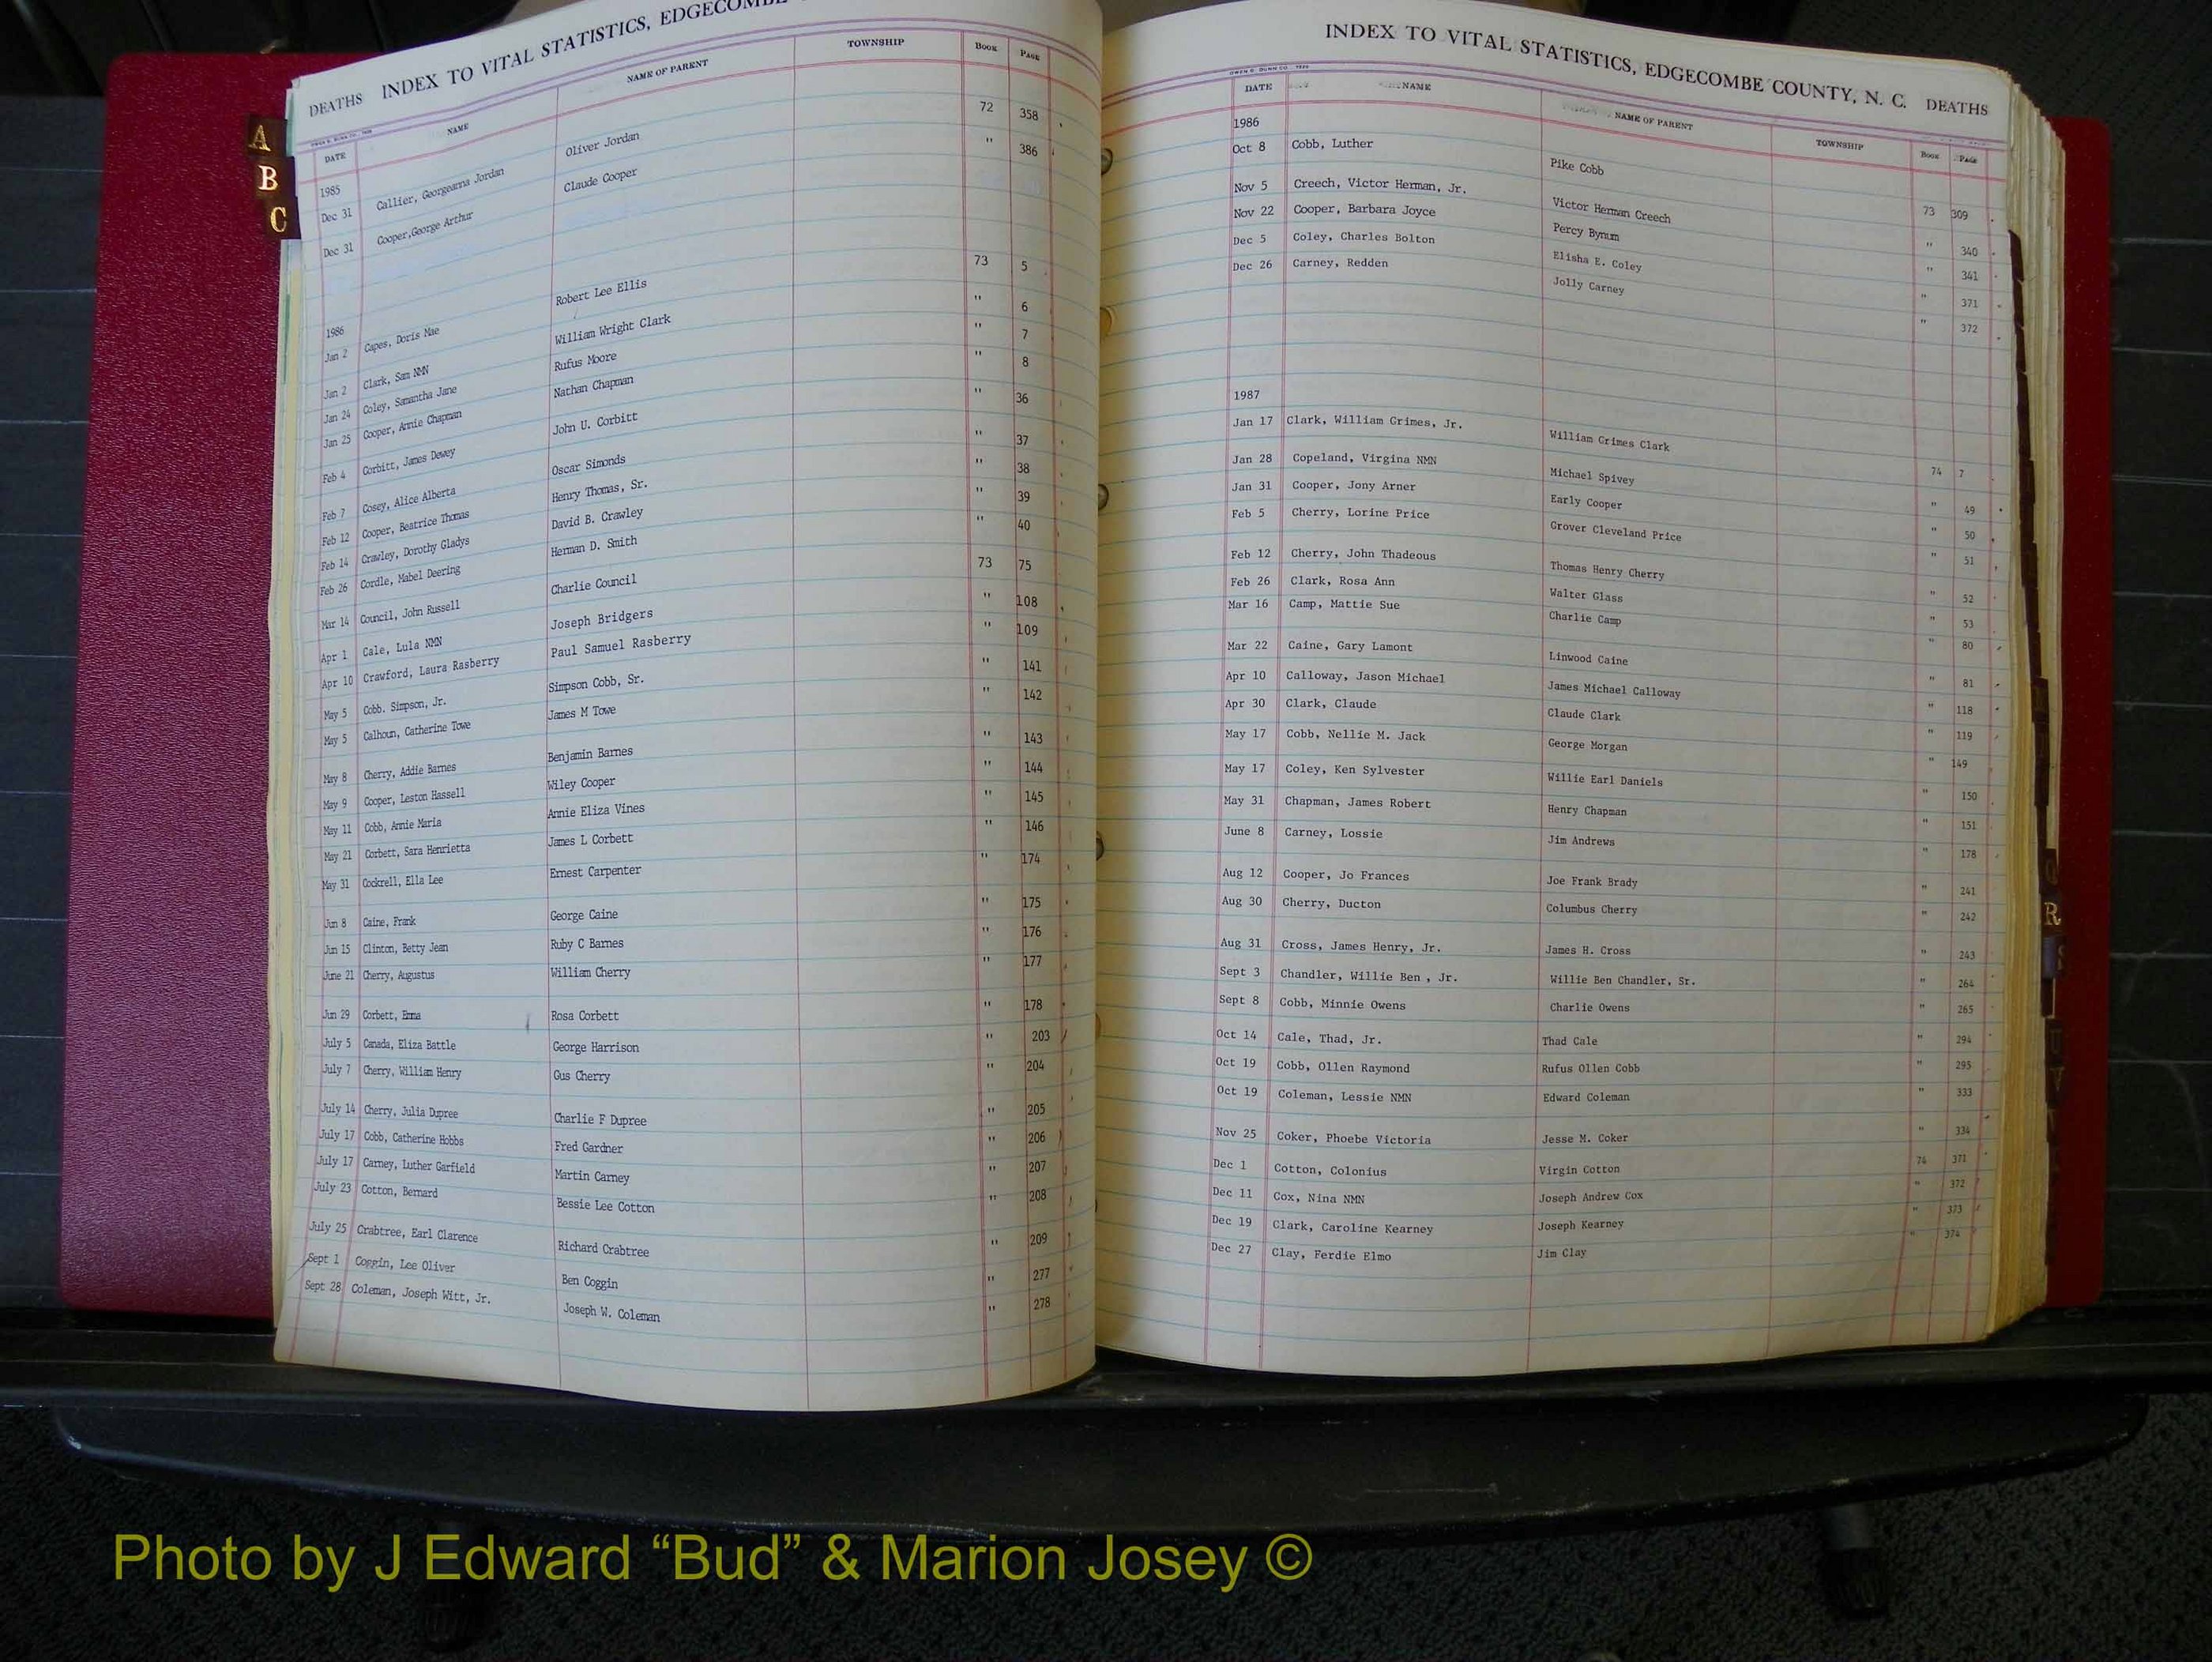 DEATHS INDEX TO VITAL STATISTICS, EDGECOMBE
DATE NAME NAME OF PARENT TOWNSHIP BOOK PAGE
1985
Dec 31 Callier, Georgeanna Jordan Oliver Jordan 72 358
Dec 31 Cooper,George Arthur Claude Cooper " 386
1986
Jan 2 Capes, Doris Mae Robert Lee Ellis 73 5
Jan 2 Clark, Sam NMN William Wright Clark " 6
Jan 24 Coley, Samantha Jane Rufus Moore " 7
Jan 25 Cooper, Annie Chapman Nathan Chapman " 8
Feb 4 Corbitt, James Dewey John U. Corbitt " 36
Feb 7 Cosey, Alice Alberta Oscar Simonds " 37
Feb 12 Cooper, Beatrice Thomas Henry Thomas, Sr. " 38
Feb 14 Crawley, Dorothy Gladys David B. Crawley " 39
Feb 26 Cordle, Mabel Deering Herman D. Smith " 40
Mar 14 Council, John Russell Charlie Council 73 75
Apr 1 Cale, Lula NMN Joseph Bridgers " 108
Apr 10 Crawford, Laura Rasberry Paul Samuel Rasberry " 109
May 5 Cobb. Simpson, Jr. Simpson Cobb, Sr. " 141
May 5 Calhoun, Catherine Towe James M Towe " 142
May 8 Cherry, Addie Barnes Benjamin Barnes " 143
May 9 Cooper, Leston Hassell Wiley Cooper " 144
May 11 Cobb, Annie Maria Annie Eliza Vines " 145
May 21 Corbett, Sara Henrietta James L Corbett " 146
May 31 Cockrell, Ella Lee Ernest Carpenter " 174
Jun 8 Caine, Frank George Caine " 175
Jun 15 Clinton, Betty Jean Ruby C Barnes " 176
June 21 Cherry, Augustus William Cherry " 177
Jun 29 Corbett, Emma Rosa Corbett " 178
July 5 Canada, Eliza Battle George Harrison " 203
July 7 Cherry, William Henry Gus Cherry " 204
July 14 Cherry, Julia Dupree Charlie F Dupree " 205
July 17 Cobb, Catherine Hobbs Fred Gardner " 206
July 17 Carney, Luther Garfield Martin Carney " 207
July 23 Cotton, Bernard Bessie Lee Cotton " 208
July 25 Crabtree, Earl Clarence Richard Crabtree " 209
Sept 1 Coggin, Lee Oliver Ben Coggin " 277
Sept 28 Coleman, Joseph Witt, Jr. Joseph W. Coleman " 278
A
B
C
INDEX TO VITAL STATISTICS, EDGECOMBE COUNTY, N. C. DEATHS
DATE NAME NAME OF PARENT TOWNSHIP BOOK PAGE
1986
Oct 8 Cobb, Luther Pike Cobb 73 309
Nov 5 Creech, Victor Herman, Jr. Victor Herman Creech " 340
Nov 22 Cooper, Barbara Joyce Percy Bynum " 341
Dec 5 Coley, Charles Bolton Elisha E. Coley " 371
Dec 26 Carney, Redden Jolly Carney " 372
1987
Jan 17 Clark, William Grimes, Jr. William Grimes Clark 74 7
Jan 28 Copeland, Virgina NMN Michael Spivey " 49
Jan 31 Cooper, Jony Arner Early Cooper " 50
Feb 5 Cherry, Lorine Price Grover Cleveland Price " 51
Feb 12 Cherry, John Thadeous Thomas Henry Cherry " 52
Feb 26 Clark, Rosa Ann Walter Glass " 53
Mar 16 Camp, Mattie Sue Charlie Camp " 80
Mar 22 Caine, Gary Lamont Linwood Caine " 81
Apr 10 Calloway, Jason Michael James Michael Calloway " 118
Apr 30 Clark, Claude Claude Clark " 119
May 17 Cobb, Nellie M. Jack George Morgan " 149
May 17 Coley, Ken Sylvester Willie Earl Daniels " 150
May 31 Chapman, James Robert Henry Chapman " 151
June 8 Carney, Lossie Jim Andrews " 178
Aug 12 Cooper, Jo Frances Joe Frank Brady " 241
Aug 30 Cherry, Ducton Columbus Cherry " 242
Aug 31 Cross, James Henry, Jr. James H. Cross " 243
Sept 3 Chandler, Willie Ben , Jr. Willie Ben Chandler, Sr. " 264
Sept 8 Cobb, Minnie Owens Charlie Owens " 265
Oct 14 Cale, Thad, Jr. Thad Cale " 294
Oct 19 Cobb, Ollen Raymond Rufus Ollen Cobb " 295
Oct 19 Coleman, Lessie NMN Edward Coleman " 333
Nov 25 Coker, Phoebe Victoria Jesse M. Coker " 334
Dec 1 Cotton, Colonius Virgin Cotton 74 371
Dec 11 Cox, Nina NMN Joseph Andrew Cox " 372
Dec 19 Clark, Caroline Kearney Joseph Kearney " 373
Dec 27 Clay, Ferdie Elmo Jim Clay " 374
R
Photo by J Edward “Bud” & Marion Josey ©